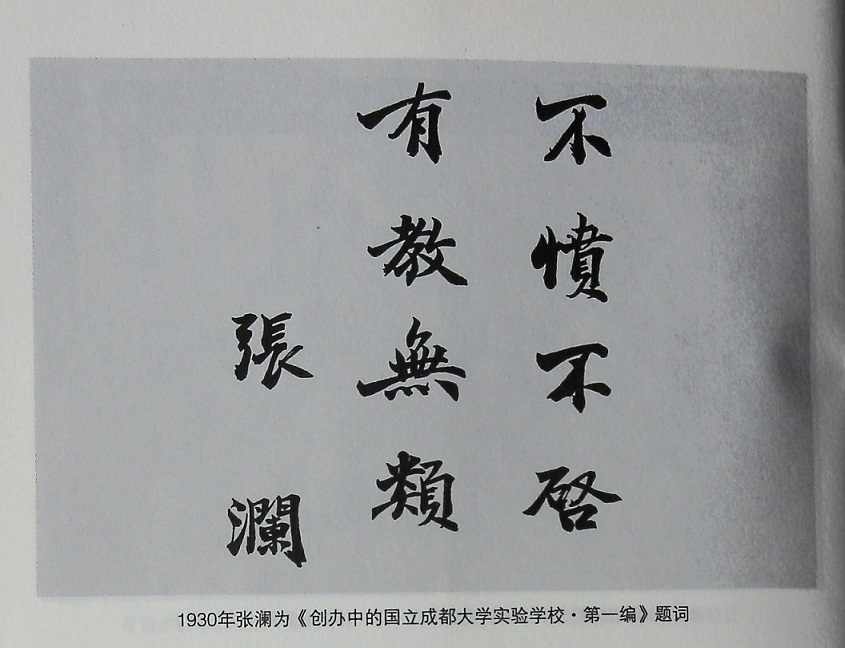 不憤不啓
有教無類
張瀾
1930年张澜为《创办中的国立成都大学实验学校·第一编》题词